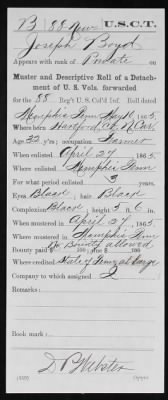 B 88 New U.S.C.T.
Joseph Boyd
Appears with rank of Private on
Muster and Descriptive Roll of a Detach-
ment of U. S. Vols. forwarded
for the 88 Reg't U.S. Col'd Inf. Roll dated
Memphis Tenn May 16, 1865.
Where born Hartford Co. N. Car.
Age 22 y'rs; occupation Farmer
When enlisted April 27, 1865.
Where enlisted Memphis Tenn
For what period enlisted 3 years.
Eyes Black; hair Black
Complexion Black; height 5 ft. 6 in.
When mustered in April 27, 1865.
Where mustered in Memphis Tenn
No Bounty allowed
Bounty paid $ 100; due $ 100
Where credited State of Tenn at large
Company to which assigned
Remarks:
Book mark:
D P Webster
Copyist.